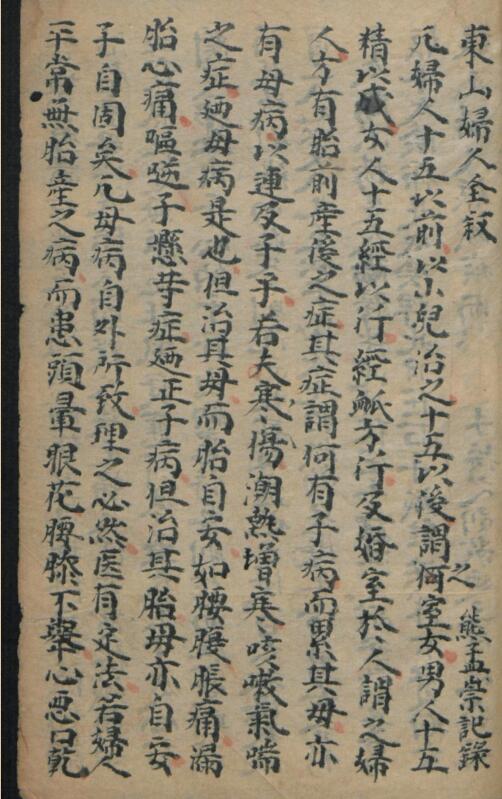 東山婦人全叙
凡婦人十五以前以小兒治之十五以後謂何之室女男人十五
熊孟崇記錄
精以成女人十五經以行經脉方行及婚室於人謂之婦
人方有胎前産後之症其症謂何有子病而累其母亦
有母病以連及于子若夫寒〻傷潮熱增寒〻咳嗽氣喘
之症廼母病是也但治其母而胎自安如腰腹脹痛漏
胎心痛嘔逆子懸等症廼正子病但治其胎母亦自安
子自固矣凡母病自外所致理之必然医有定法若婦人
平常無胎産之病而患頭暈眼花腰膝下舉心悪口乾